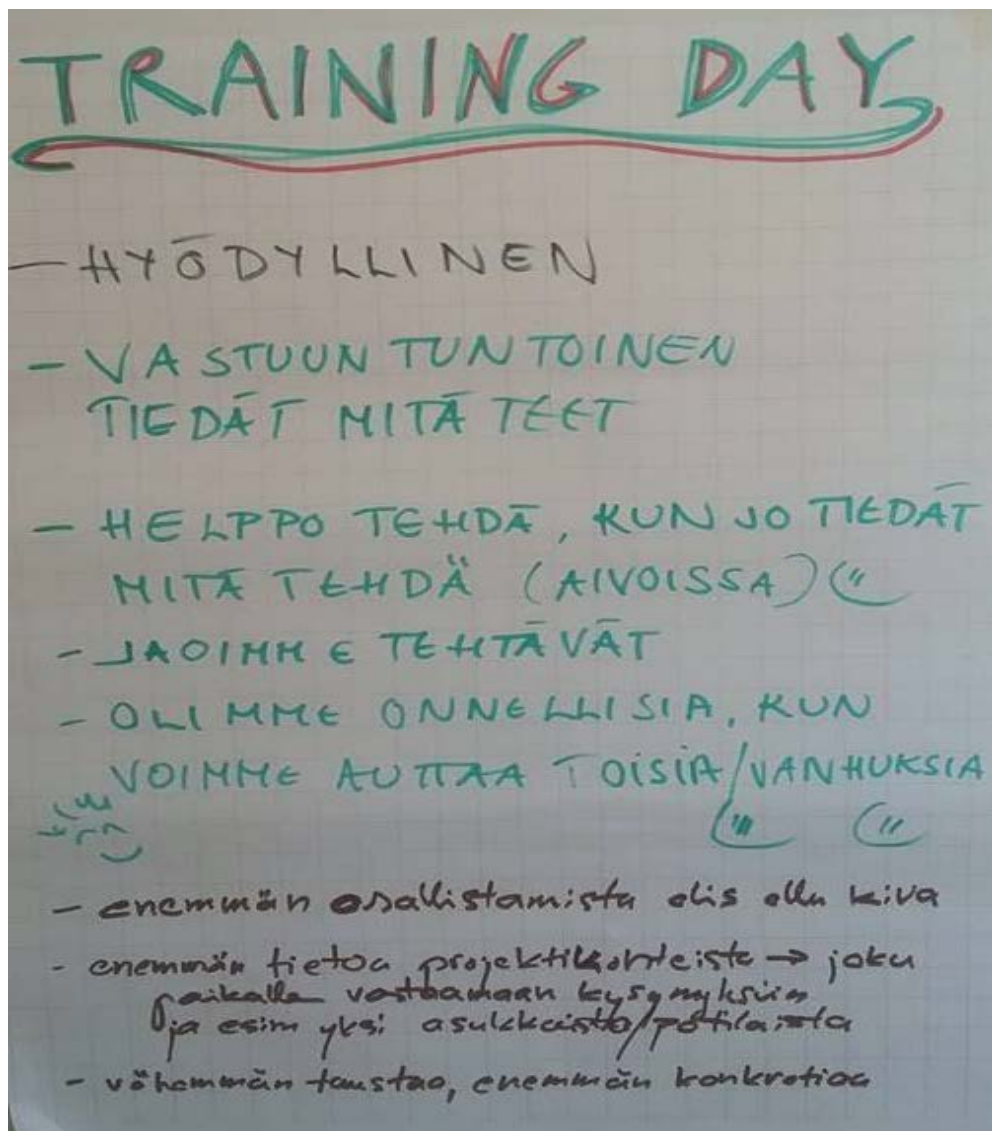 TRAINING DAY
- HYÖDYLLINEN
- VASTUUNTUNTOINEN
TIEDÄT MITÄ TEET
- HELPPO TEHDÄ, KUN JO TIEDÄT
MITÄ TEHDÄ (AIVOISSA)
- JAOIMME TEHTÄVÄT
- OLIMME ONNELLISIA, KUN
VOIMME AUTTAA TOISIA/VANHUKSIA
- enemmän osallistamista olis ollu kiva
- enemmän tietoa projektikohteista → joku
paikalla vastaamaan kysymyksiin
ja esim yksi asukkaista/potilaista
- vähemmän taustaa, enemmän konkretiaa